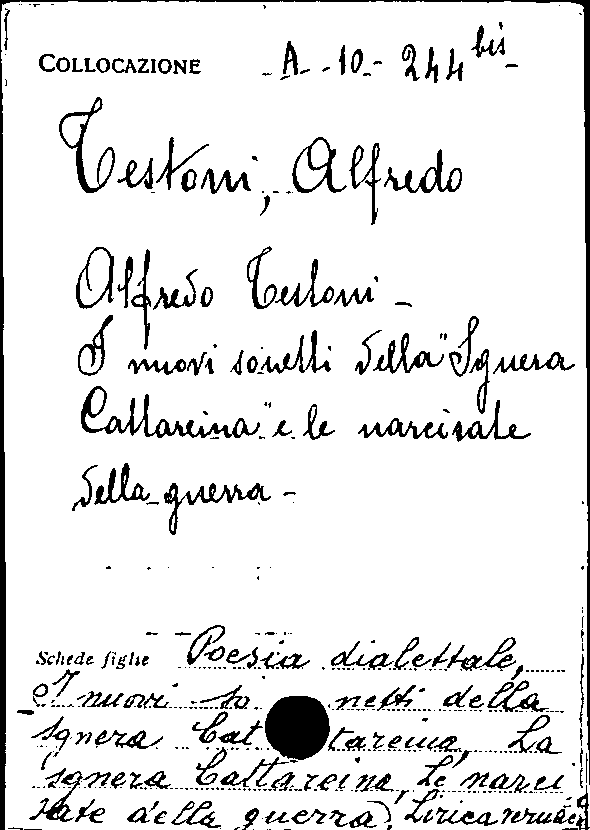 COLLOCAZIONE A-10-244 bis
Testoni, Alfredo
Alfredo Testoni -
I nuovi sonetti della "Sgnera
Cattareina" e le narcisate
della guerra -
Schede figlie Poesia dialettale,
I nuovi sonetti della
sgnera Cattareina, La
sgnera Cattareina, Le narci
sate della guerra, Lirica